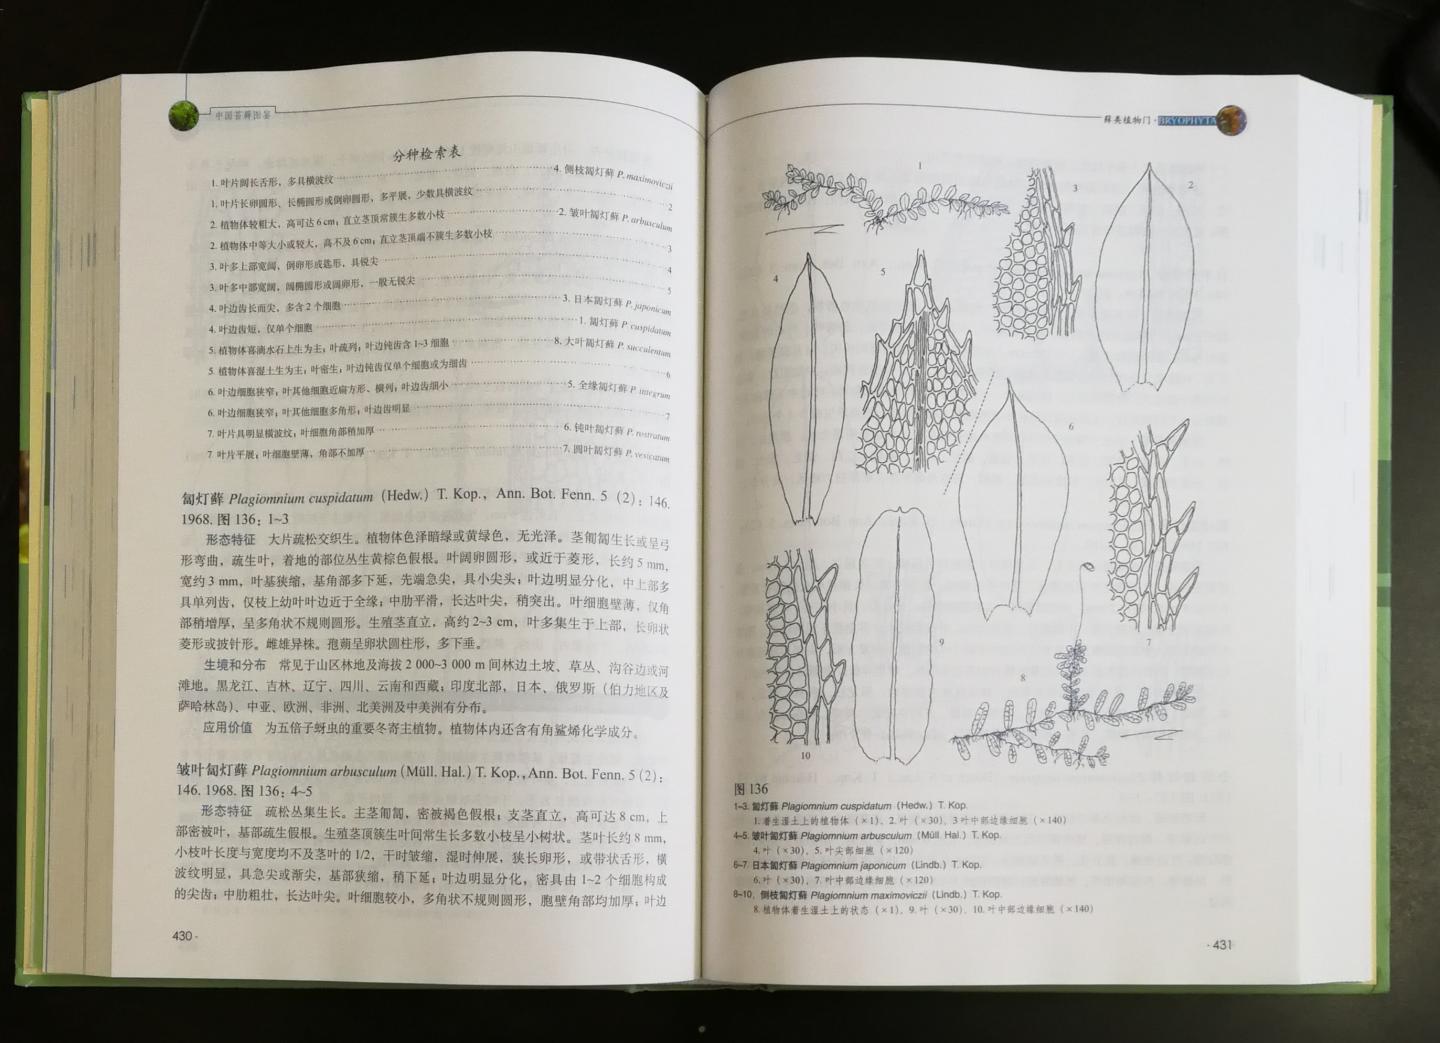 中国苔藓图鉴
分种检索表
1. 叶片阔长舌形，多具横波纹 4. 侧枝匐灯藓 P. maximoviczii
1. 叶片长卵圆形、长椭圆形或倒卵圆形，多平展，少数具横波纹 2
2. 植物体较粗大，高可达 6 cm；直立茎顶常簇生多数小枝 2. 皱叶匐灯藓 P. arbusculum
2. 植物体中等大小或较大，高不及 6 cm；直立茎顶端不簇生多数小枝 3
3. 叶多上部宽阔，倒卵形或匙形，具锐尖 4
3. 叶多中部宽阔，阔椭圆形或阔卵形，一般无锐尖 5
4. 叶边齿长而尖，多含 2 个细胞 3. 日本匐灯藓 P. japonicum
4. 叶边齿短，仅单个细胞 1. 匐灯藓 P. cuspidatum
5. 植物体喜滴水石上生为主；叶疏列；叶边钝齿含 1~3 细胞 8. 大叶匐灯藓 P. succulentum
5. 植物体喜湿土生为主；叶密生；叶边钝齿仅单个细胞或为细齿 6
6. 叶边细胞狭窄；叶其他细胞近扁方形、横列；叶边齿细小 5. 全缘匐灯藓 P. integrum
6. 叶边细胞狭窄；叶其他细胞多角形；叶边齿明显 7
7. 叶片具明显横波纹；叶细胞角部稍加厚 6. 钝叶匐灯藓 P. rostratum
7 叶片平展；叶细胞壁薄，角部不加厚 7. 圆叶匐灯藓 P. vesicatum
匐灯藓 Plagiomnium cuspidatum (Hedw.) T. Kop., Ann. Bot. Fenn. 5 (2): 146.
1968. 图 136: 1~3
形态特征 大片疏松交织生。植物体色泽暗绿或黄绿色，无光泽。茎匍匐生长或呈弓
形弯曲，疏生叶，着地的部位丛生黄棕色假根。叶阔卵圆形，或近于菱形，长约 5 mm，
宽约 3 mm，叶基狭缩，基角部多下延，先端急尖，具小尖头；叶边明显分化，中上部多
具单列齿，仅枝上幼叶叶边近于全缘；中肋平滑，长达叶尖，稍突出。叶细胞壁薄，仅角
部稍增厚，呈多角状不规则圆形。生殖茎直立，高约 2~3 cm，叶多集生于上部，长卵状
菱形或披针形。雌雄异株。孢蒴呈卵状圆柱形，多下垂。
生境和分布 常见于山区林地及海拔 2 000~3 000 m 间林边土坡、草丛、沟谷边或河
滩地。黑龙江、吉林、辽宁、四川、云南和西藏；印度北部，日本、俄罗斯（伯力地区及
萨哈林岛）、中亚、欧洲、非洲、北美洲及中美洲有分布。
应用价值 为五倍子蚜虫的重要冬寄主植物。植物体内还含有角鲨烯化学成分。
皱叶匐灯藓 Plagiomnium arbusculum (Müll. Hal.) T. Kop., Ann. Bot. Fenn. 5 (2):
146. 1968. 图 136: 4~5
形态特征 疏松丛集生长。主茎匍匐，密被褐色假根；支茎直立，高可达 8 cm，上
部密被叶，基部疏生假根。生殖茎顶簇生叶间常生长多数小枝呈小树状。茎叶长约 8 mm，
小枝叶长度与宽度均不及茎叶的 1/2，干时皱缩，湿时伸展，狭长卵形，或带状舌形，横
波纹明显，具急尖或渐尖，基部狭缩，稍下延；叶边明显分化，密具由 1~2 个细胞构成
的尖齿；中肋粗壮，长达叶尖。叶细胞较小，多角状不规则圆形，胞壁角部均加厚；叶边
430
藓类植物门·BRYOPHYTA
1
2
3
4
5
6
7
8
9
10
图 136
1~3. 匐灯藓 Plagiomnium cuspidatum (Hedw.) T. Kop.
1. 着生湿土上的植物体（×1），2. 叶（×30），3 叶中部边缘细胞（×140）
4~5. 皱叶匐灯藓 Plagiomnium arbusculum (Müll. Hal.) T. Kop.
4. 叶（×30），5. 叶尖部细胞（×120）
6~7. 日本匐灯藓 Plagiomnium japonicum (Lindb.) T. Kop.
6. 叶（×30），7. 叶中部边缘细胞（×120）
8~10. 侧枝匐灯藓 Plagiomnium maximoviczii (Lindb.) T. Kop.
8. 植物体着生湿土上的状态（×1），9. 叶（×30），10. 叶中部边缘细胞（×140）
431